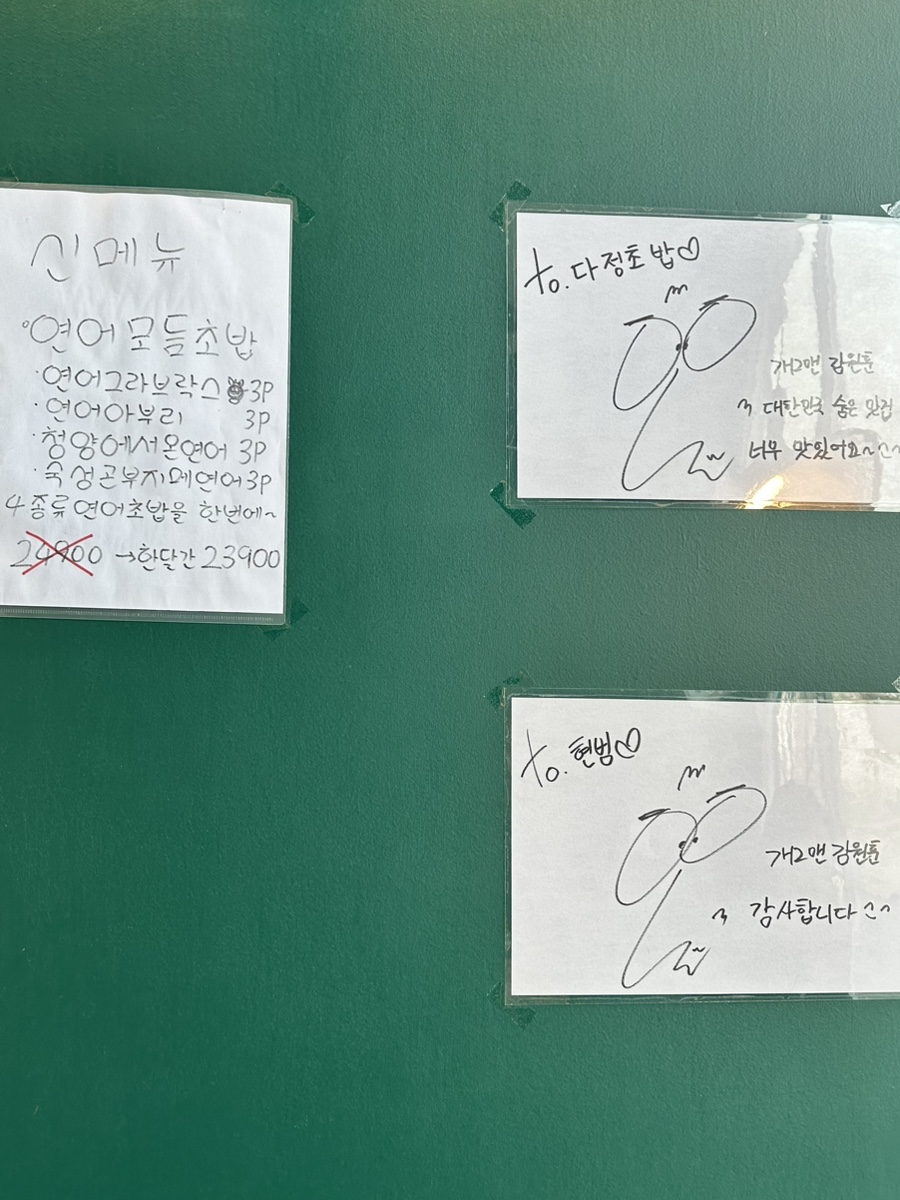 신메뉴
연어모듬초밥
·연어그라브락스 3P
·연어아부리 3P
·청양에서온연어 3P
·숙성곤부지메연어 3P
4종류 연어초밥을 한번에~
24900 →한달간 23900
to. 다정초밥♡
개2맨 김원훈
대한민국 숨은 맛집
너무 맛있어요~
to. 현범♡
개2맨 김원훈
감사합니다